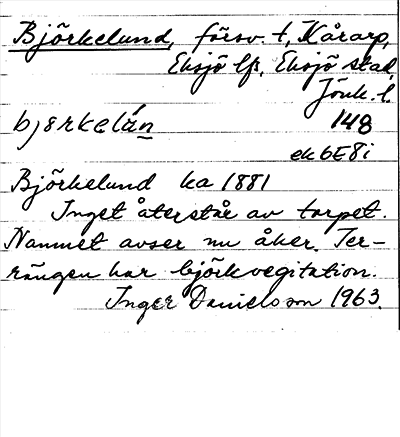 Björkelund, försv. t, Kårarp,
Eksjö lfs, Eksjö stad,
Jönk. l.
bjørkelán 148
ek 6E8i
Björkelund ka 1881
Inget återstår av torpet.
Namnet avser nu åker. Ter-
rängen har björkvegitation.
Inger Danielsson 1963.